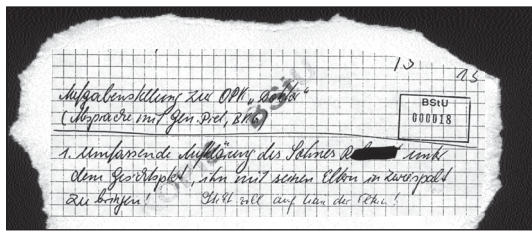 13
15
Aufgabenstellung zur OPK „Doktor“
(Absprache mit Gen. Piel, BKG
BStU
000018
1. Umfassende Aufklärung des Sohnes R unter
dem Gesichtspkt., ihn mit seinen Eltern in Zwiespalt
zu bringen!